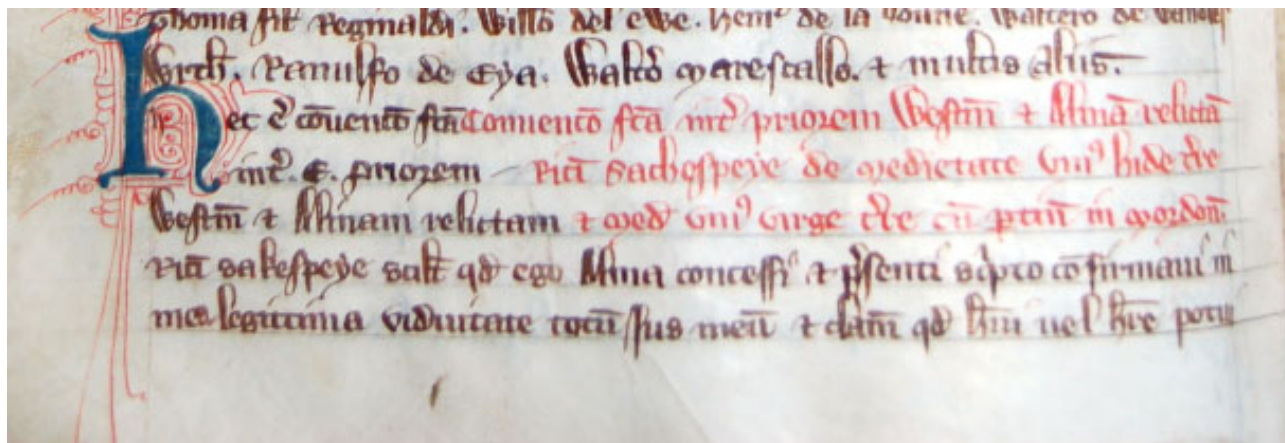 Thoma fil Reginaldi. Willo del ewe. Henr de la
Ranulfo de Eya. Walto Marescallo. ⁊ multis Aliis.
Hec ē cōuentō fcā Conuentō fcā int priorem Westm ⁊ Alinā relictā
int. E. priorem Rici Sachespeye de Medietate Uniꝰ hide tre
Westm ⁊ Alinam relictam ⁊ Med Uniꝰ Virge tre cū ptin in Mordon.
Rici Sakespeye scilt qd ego Alina concessi ⁊ psenti scpto cōfirmaui in
mea legittima viduitate totū Jus meū ⁊ clam qd hui uel hre potui